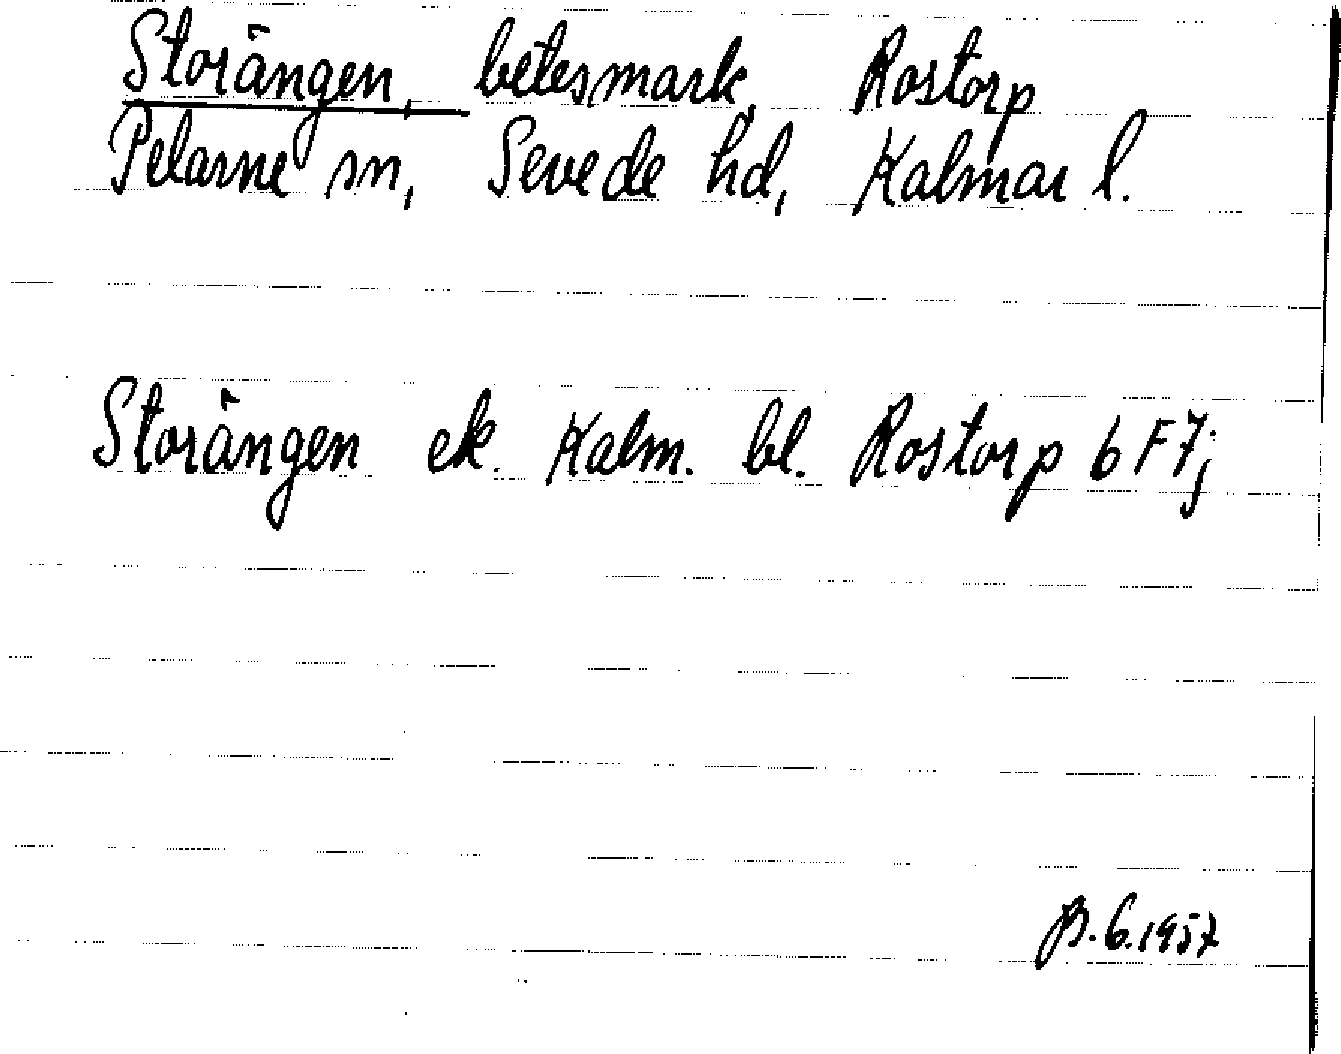 Storängen, betesmark, Rostorp
Pelarne sn, Sevede hd, Kalmar l.
Storängen ek. Kalm. bl. Rostorp 6F7;
B.G.1957